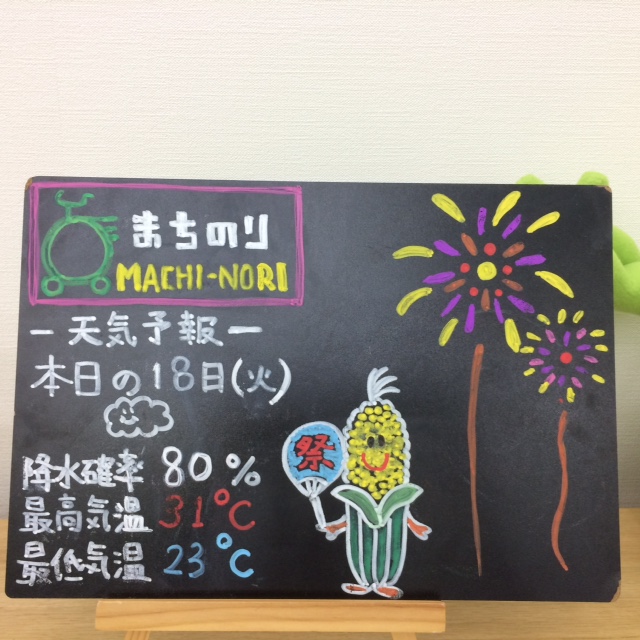 まちのり
MACHI-NORI
ー天気予報ー
本日の18日(火)
降水確率 80%
最高気温 31℃
最低気温 23℃
祭